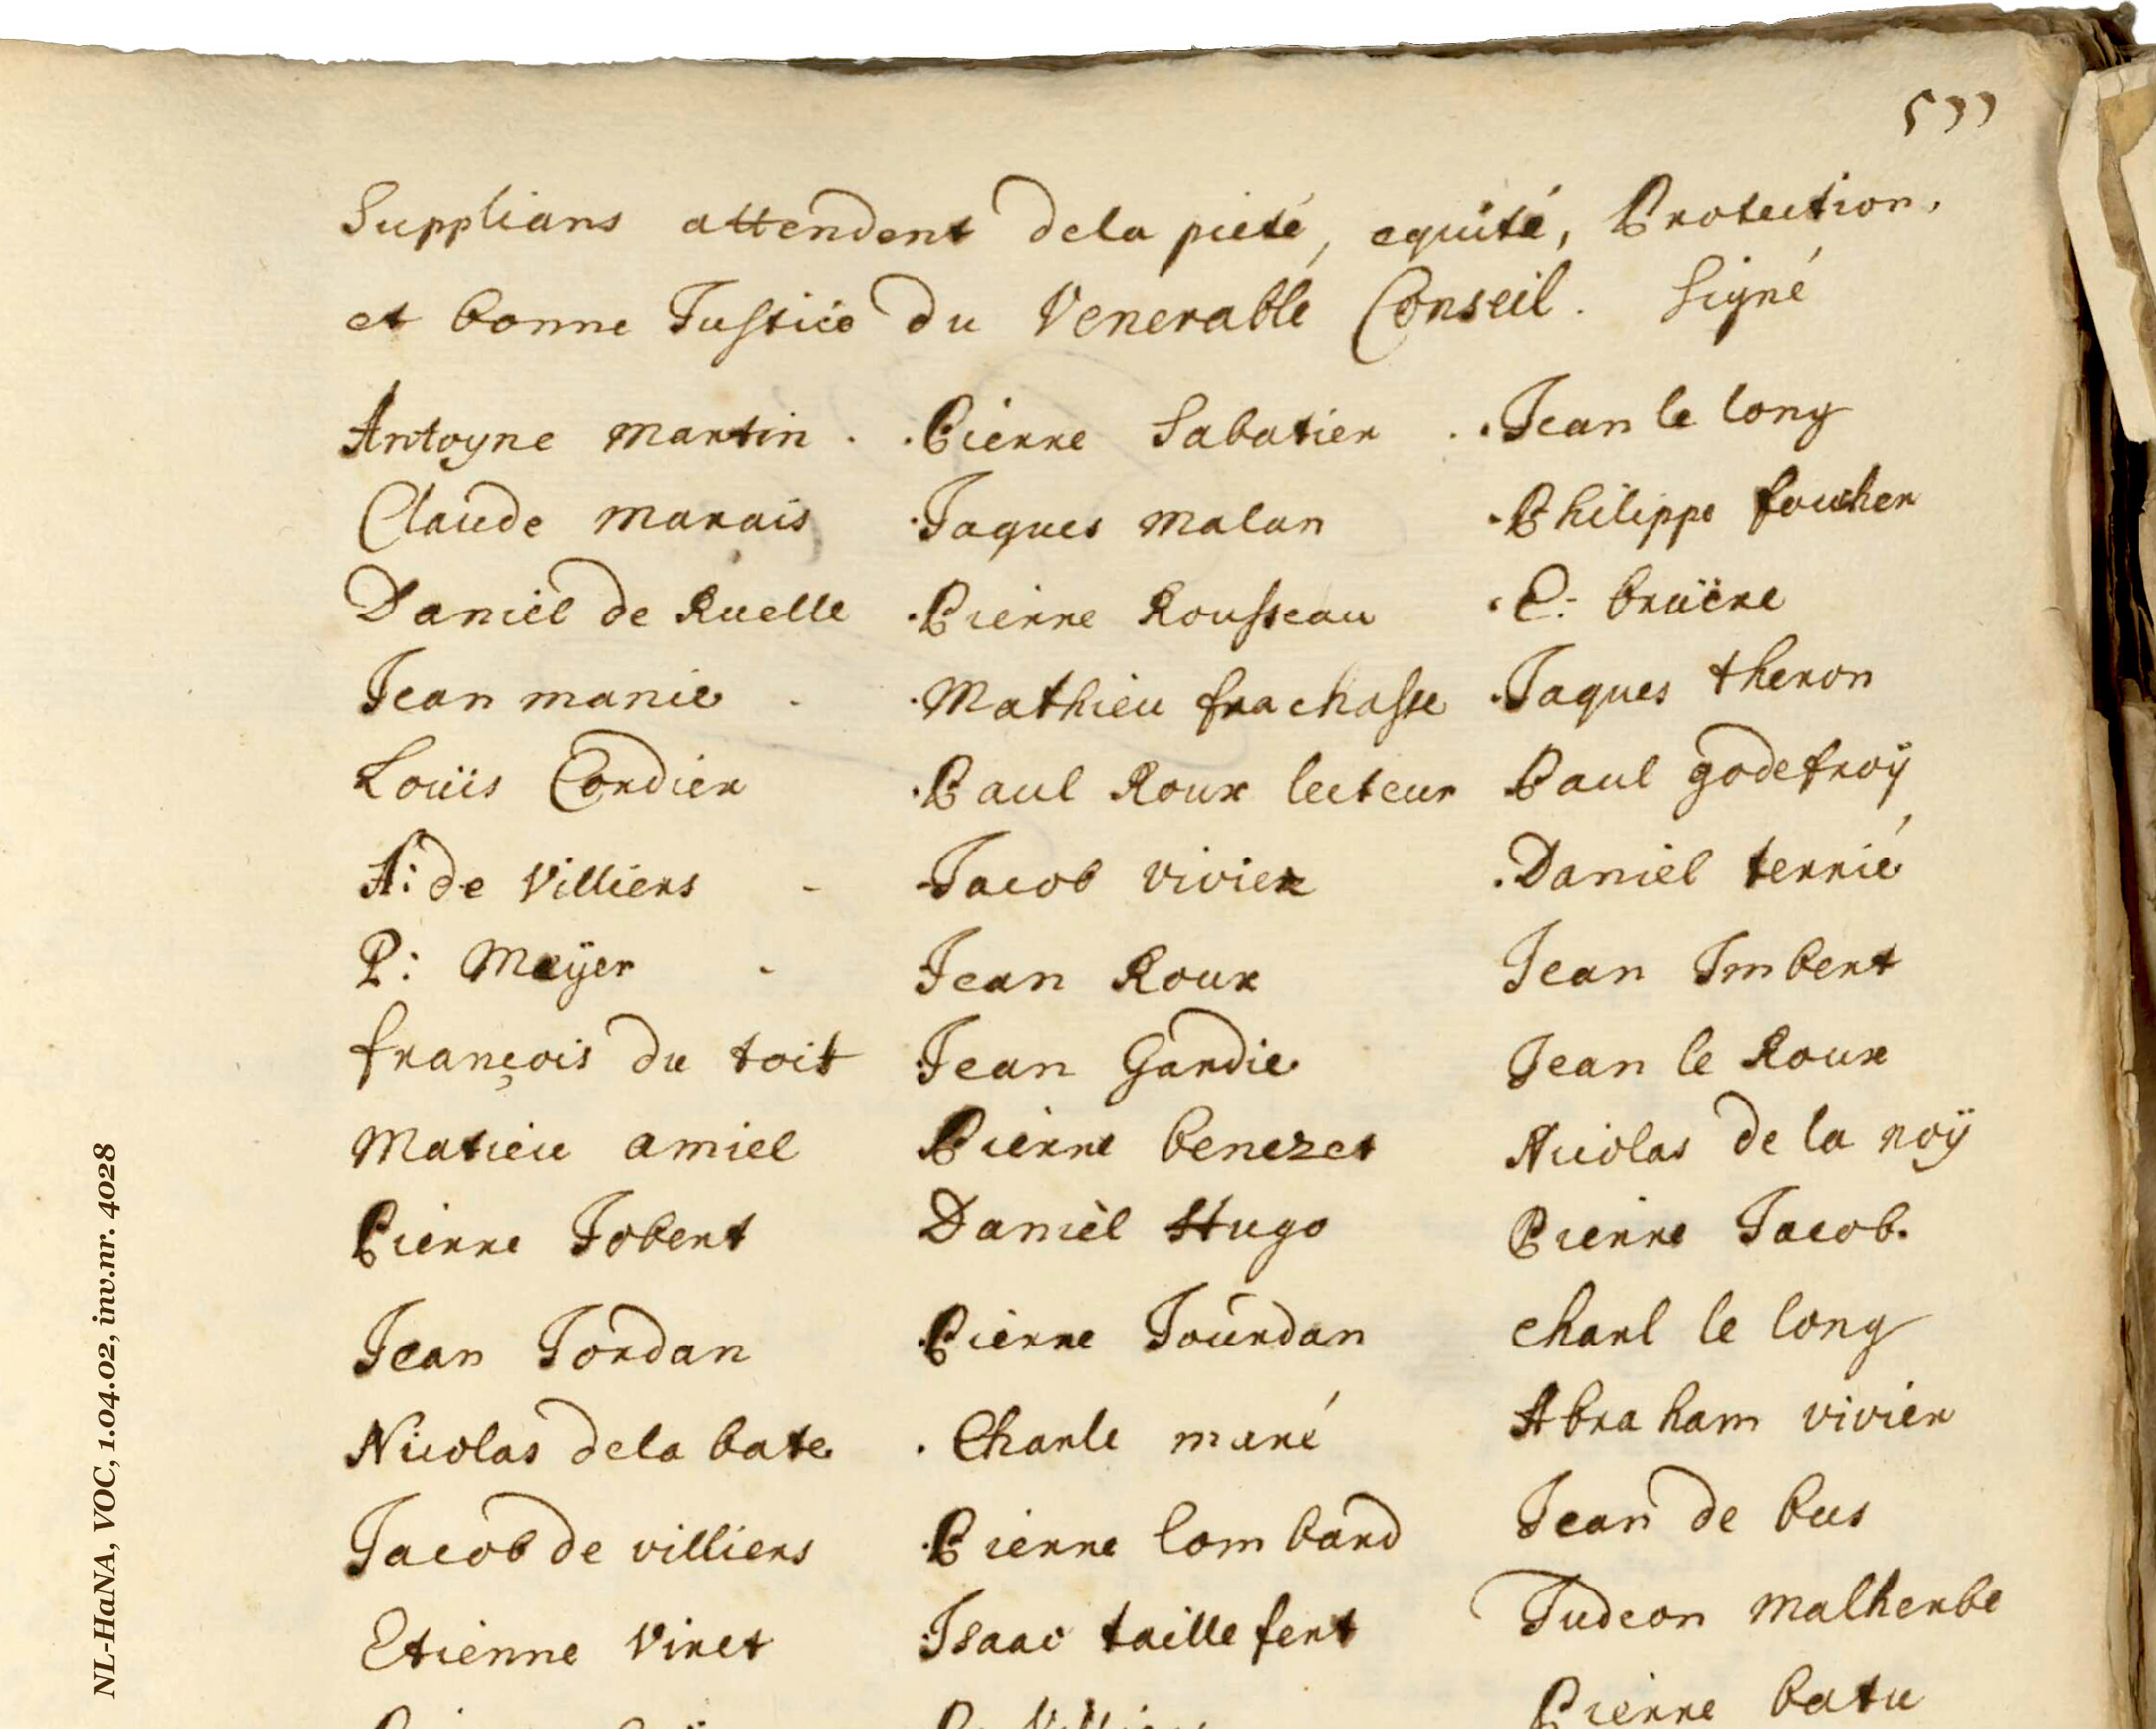 533
Supplians attendent dela pieté, equité, Protection,
et bonne Justice du Venerable Conseil. Signé
Antoyne martin . . Pierre Sabatier . . Jean le long
Claude marais . Jaques malan . Philippe foucher
Daniel de Ruelle . Pierre Rousseau . E: bruëre
Jean manie . . Mathieu frachasse . Jaques theron
Louïs Cordier . Paul Roux lecteur . Paul godefroÿ
A: de Villiers - . Jacob vivier . Daniel terrié
P: Meÿer - Jean Roux Jean Imbert
françois du toit Jean Gardie Jean le Roux
Matieu amiel Pierre benezet Nicolas de la noÿ
Pierre Jobert Daniel Hugo Pierre Jacob.
Jean Jordan . Pierre Joúrdan charl le long
Nicolas dela bate . Charle maré Abraham vivier
Jacob de villiers . Pierre lombard Jean de bus
Etienne Viret . Isaac taillefert Judeon malherbe
Pierre batu
NL-HaNA, VOC, 1.04.02, inv.nr. 4028